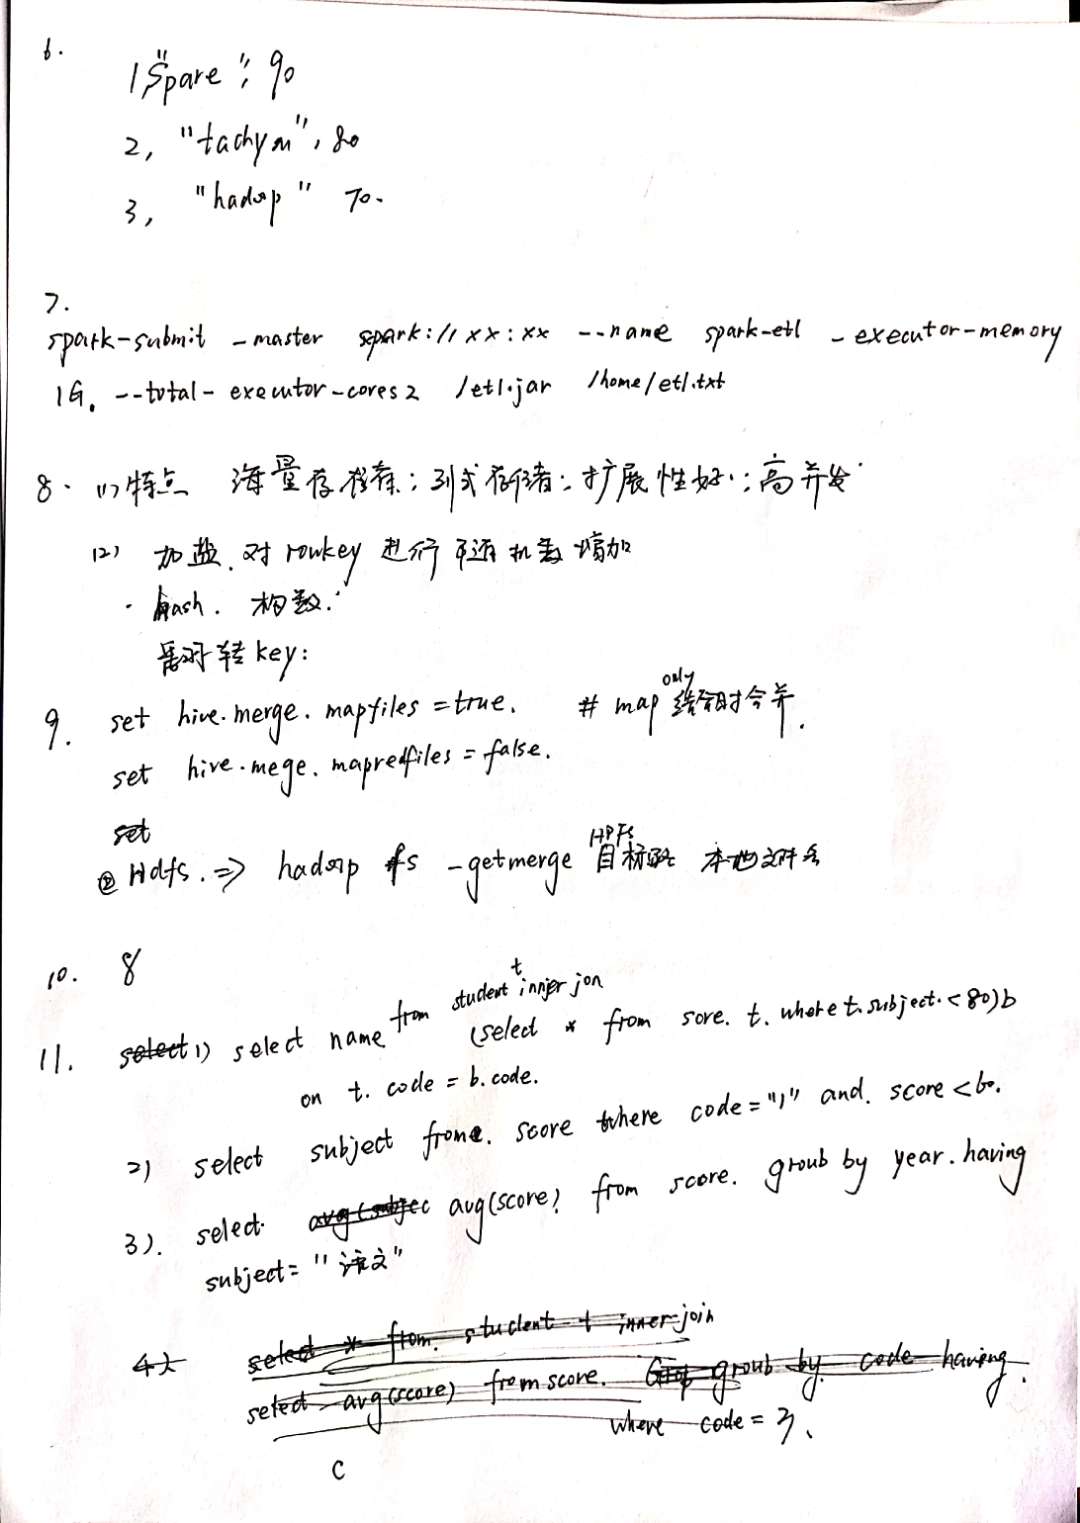 6.
1,"Spare", 90
2, "tachyon", 80
3, "hadoop" 70.
7.
spark-submit -master spark://xx:xx --name spark-etl -executor-memory
1G. --total-executor-cores 2 /etl.jar /home/etl.txt
8. (1) 特点 海量存储; 列式存储; 扩展性好; 高并发
(2) 加盐. 对 rowkey 进行 随机数增加
· hash.
翻转 key:
9. set hive.merge.mapfiles = true. # map only 结合时合并.
set hive.mege.mapredfiles = false.
set
② Hdfs. => hadoop fs -getmerge HDFS 目标路 本地文件
10. 8
11. select 1) select name from student t inner jon
(select * from sore. t. where t.subject. < 80)b
on t. code = b.code.
2) select subject from. score where code = "1" and. score < 60.
3). select. avg(subjec avg(score) from score. groub by year. having
subject = "语文"
select * from. student t inner join
select avg(score) from score. Grop groub by. code having.
where code = 3.
C